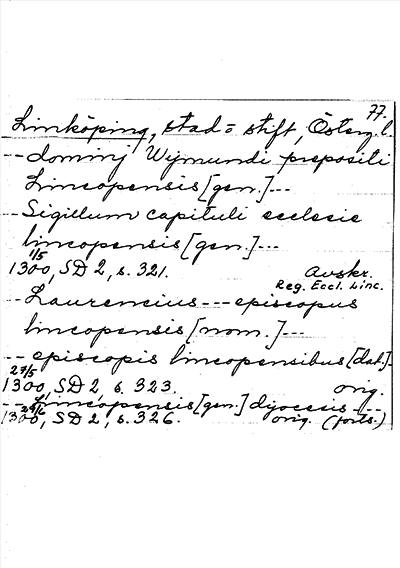 77.
Linköping, stad= stift, Österg.l.
-- dominj Wijmundi prepositi
Lincopensis [gen.] ---
-- Sigillum capituli ecclesie
lincopensis [gen.] ---
1/5
1300, SD 2, s. 321. Avskr.
Reg. Eccl. Linc.
-- Laurencius --- episcopus
lincopensis [nom.] ---
-- episcopis lincopensibus [dat.] -
27/5
1300, SD 2, s. 323. orig.
-- Lincopensis [gen.] dyocesis ---
29/6
1300, SD 2, s. 326. orig. (forts.)